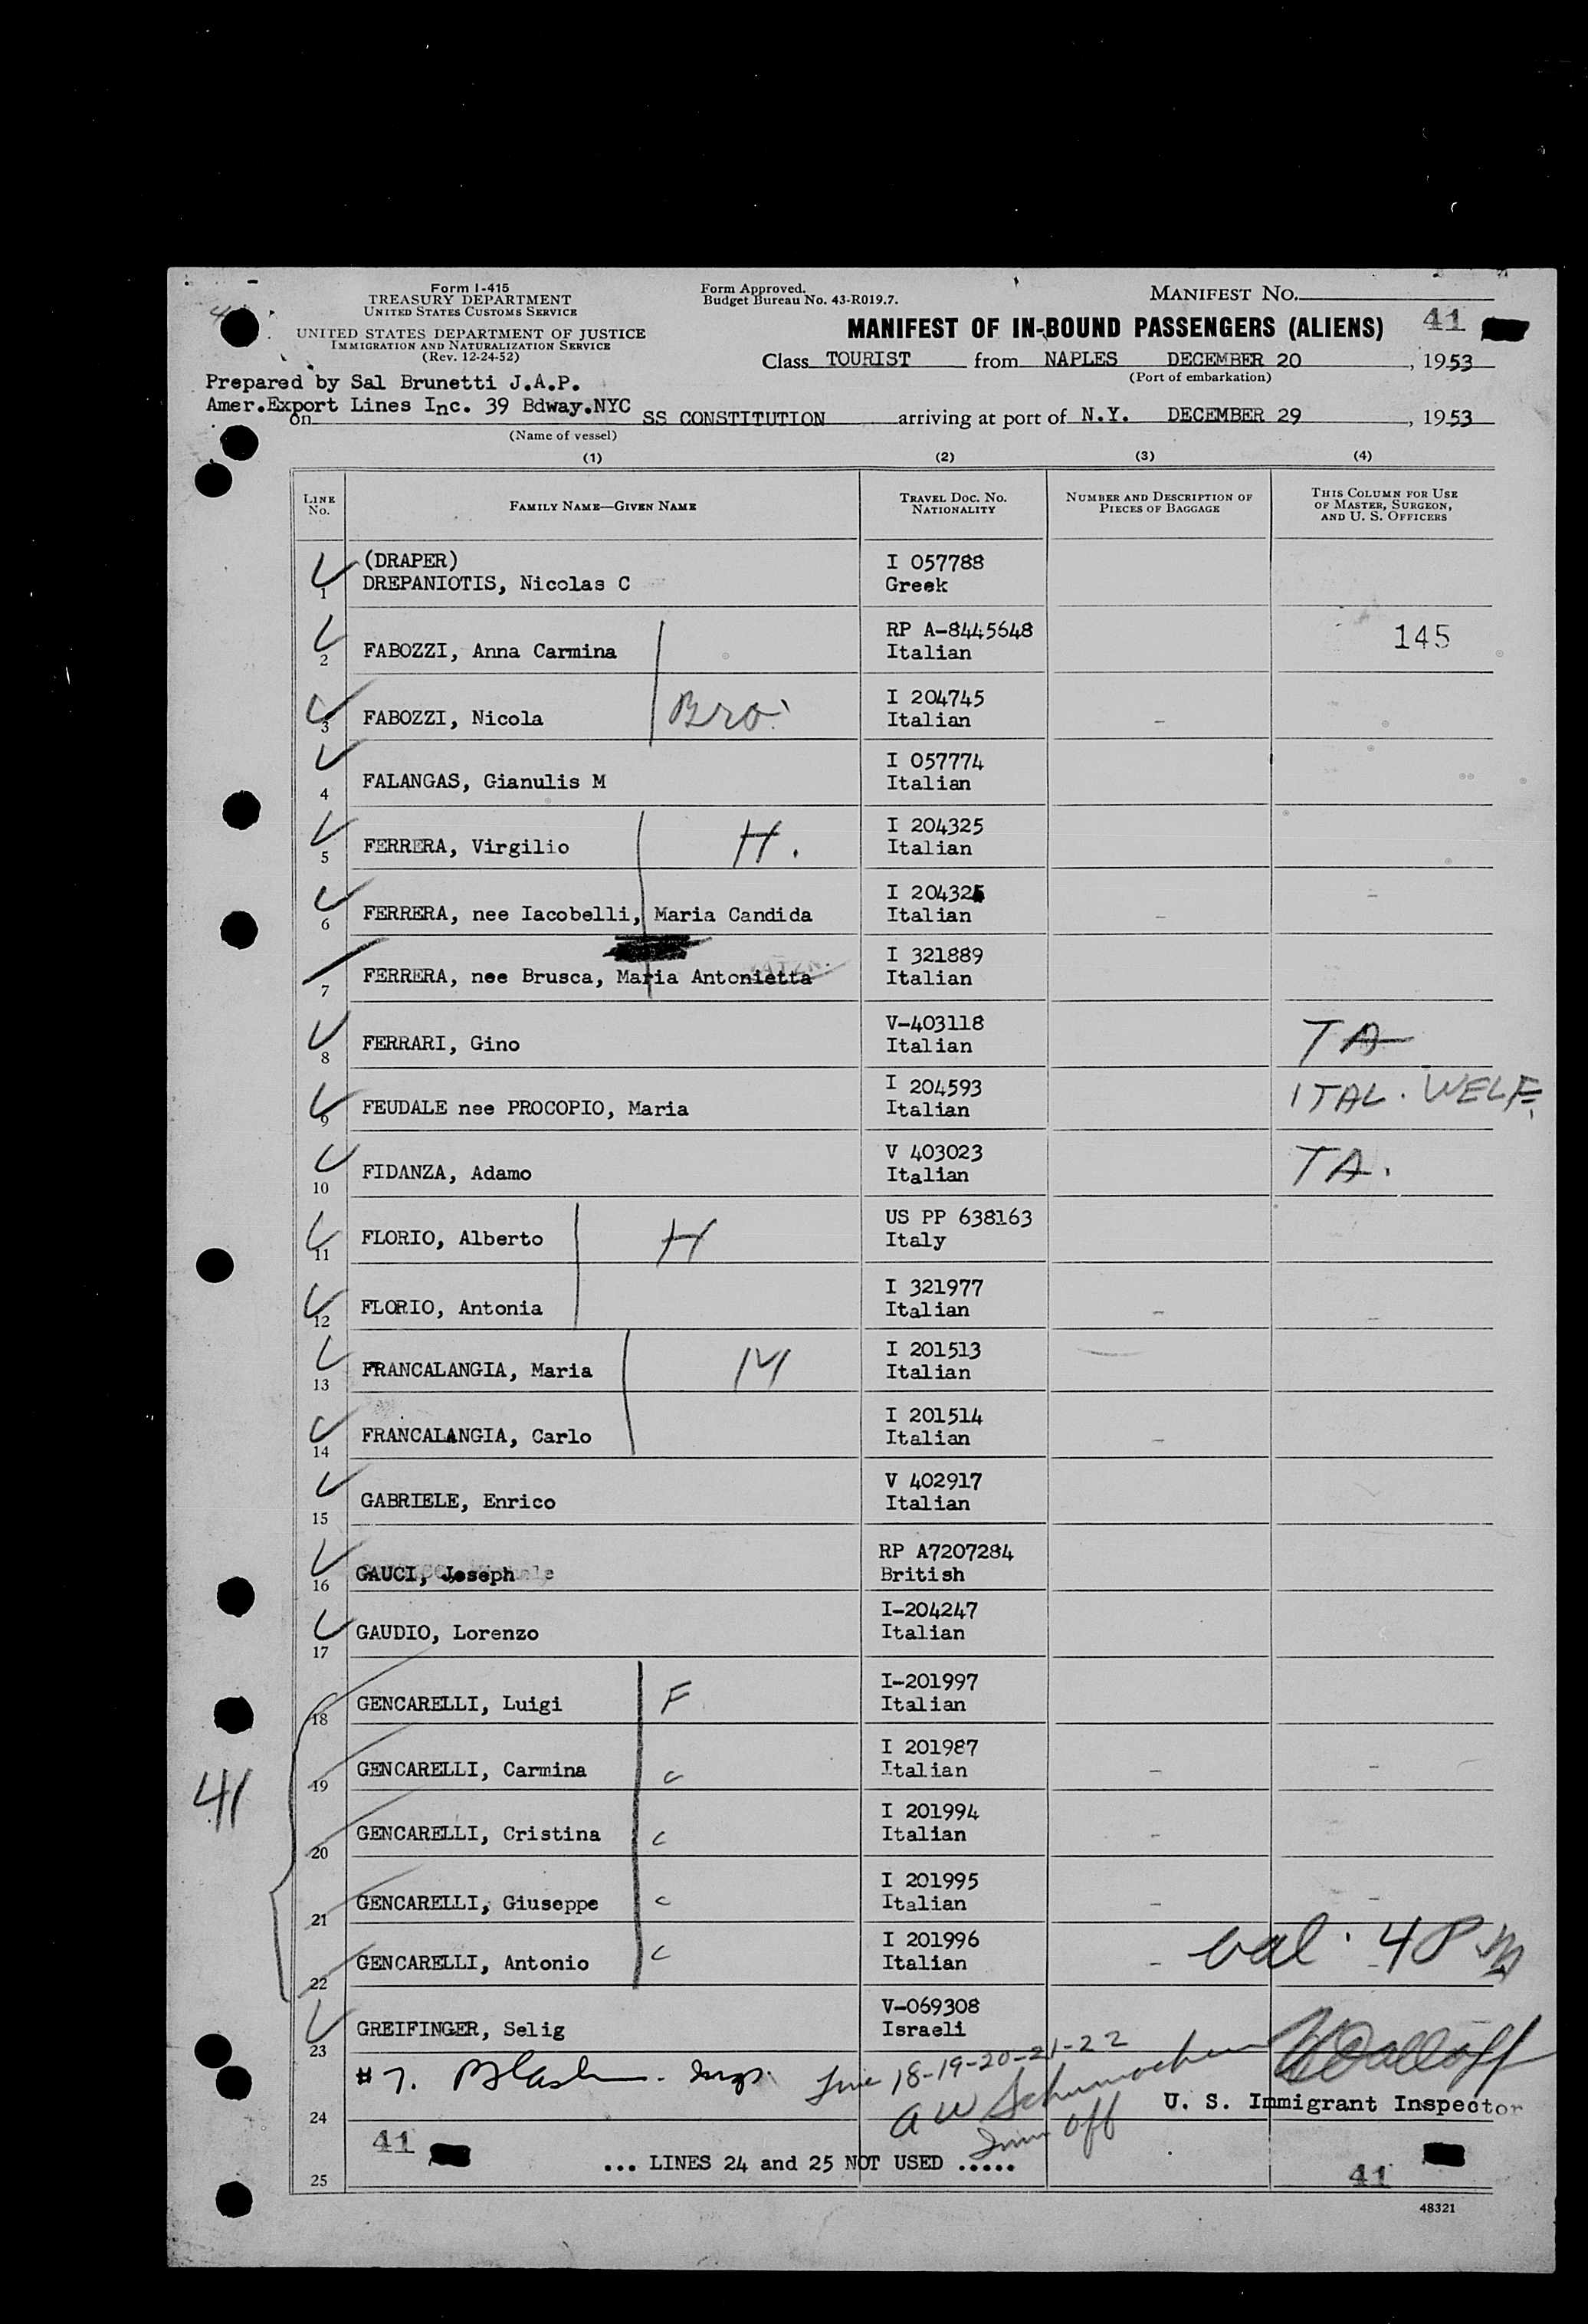 Form I-415
TREASURY DEPARTMENT
UNITED STATES CUSTOMS SERVICE
UNITED STATES DEPARTMENT OF JUSTICE
IMMIGRATION AND NATURALIZATION SERVICE
(Rev. 12-24-52)
Form Approved.
Budget Bureau No. 43-R019.7.
MANIFEST NO.
MANIFEST OF IN-BOUND PASSENGERS (ALIENS) 41
Class TOURIST from NAPLES DECEMBER 20, 1953
(Port of embarkation)
Prepared by Sal Brunetti J.A.P.
Amer.Export Lines Inc. 39 Bdway.NYC
on SS CONSTITUTION arriving at port of N.Y. DECEMBER 29, 1953
(Name of vessel)
(1) (2) (3) (4)
LINE NO. FAMILY NAME—GIVEN NAME TRAVEL DOC. NO. NATIONALITY NUMBER AND DESCRIPTION OF PIECES OF BAGGAGE THIS COLUMN FOR USE OF MASTER, SURGEON, AND U. S. OFFICERS
(DRAPER) I 057788
1 DREPANIOTIS, Nicolas C Greek
RP A-8445648 145
2 FABOZZI, Anna Carmina Italian
I 204745
3 FABOZZI, Nicola Bro. Italian
I 057774
4 FALANGAS, Gianulis M Italian
I 204325
5 FERRERA, Virgilio H. Italian
I 20432
6 FERRERA, nee Iacobelli, Maria Candida Italian
I 321889
7 FERRERA, nee Brusca, Maria Antonietta Italian
V-403118
8 FERRARI, Gino Italian TA
I 204593
9 FEUDALE nee PROCOPIO, Maria Italian ITAL. WELF.
V 403023
10 FIDANZA, Adamo Italian TA.
US PP 638163
11 FLORIO, Alberto H Italy
I 321977
12 FLORIO, Antonia Italian
I 201513
13 FRANCALANGIA, Maria M Italian
I 201514
14 FRANCALANGIA, Carlo Italian
V 402917
15 GABRIELE, Enrico Italian
RP A7207284
16 GAUCI, Joseph British
I-204247
17 GAUDIO, Lorenzo Italian
I-201997
18 GENCARELLI, Luigi F Italian
I 201987
19 GENCARELLI, Carmina c Italian
41
I 201994
20 GENCARELLI, Cristina c Italian
I 201995
21 GENCARELLI, Giuseppe c Italian
I 201996
22 GENCARELLI, Antonio c Italian val. 4 PM
V-069308
23 GREIFINGER, Selig Israeli
#7. Insp. Line 18-19-20-21-22
A W Schumacher
Imm Off
U. S. Immigrant Inspector
24
41
... LINES 24 and 25 NOT USED .....
25 41
48321